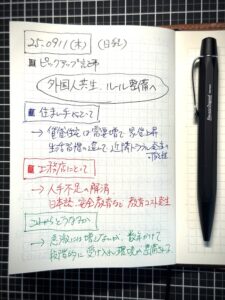 25.0911(木) (日経)
■ピックアップ記事
外国人共生、ルール整備へ
■住まい手にとって
→賃貸住宅は需要増で家賃上昇
生活習慣の違いで近隣トラブル発生の
可能性
■工務店にとって
→人手不足の解消
日本語、安全教育など教育コスト発生
これからどうなるか
→急激には増えないが、数年かけて
段階的に受け入れ環境が整備される